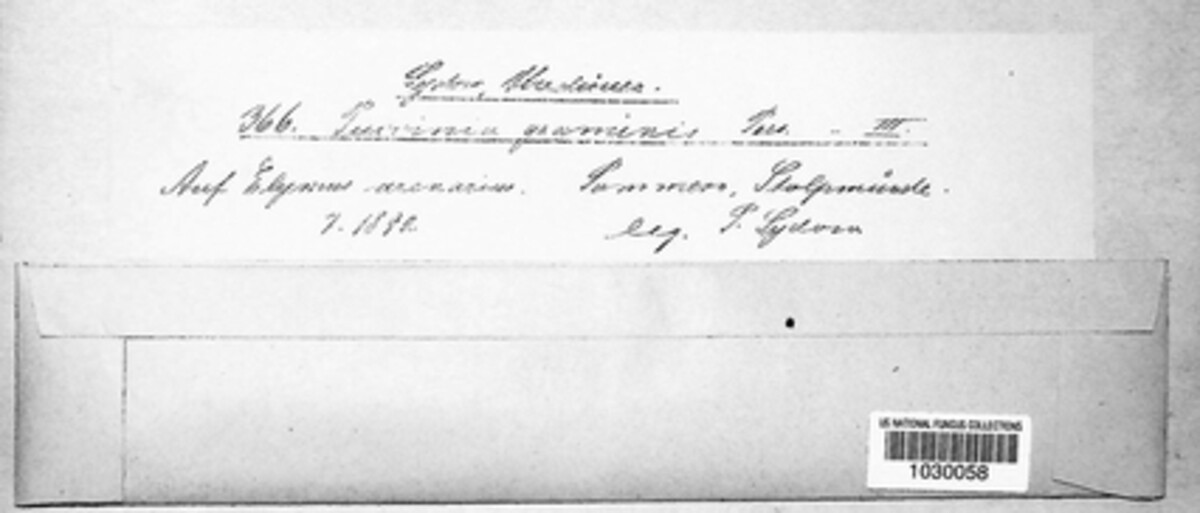 Sydow, Uredineen.
366. Puccinia graminis Pers. .. III.
Auf Elymus arenarius. Pommern, Stolpmünde.
7. leg. P. Sydow
US NATIONAL FUNGUS COLLECTIONS
1030058